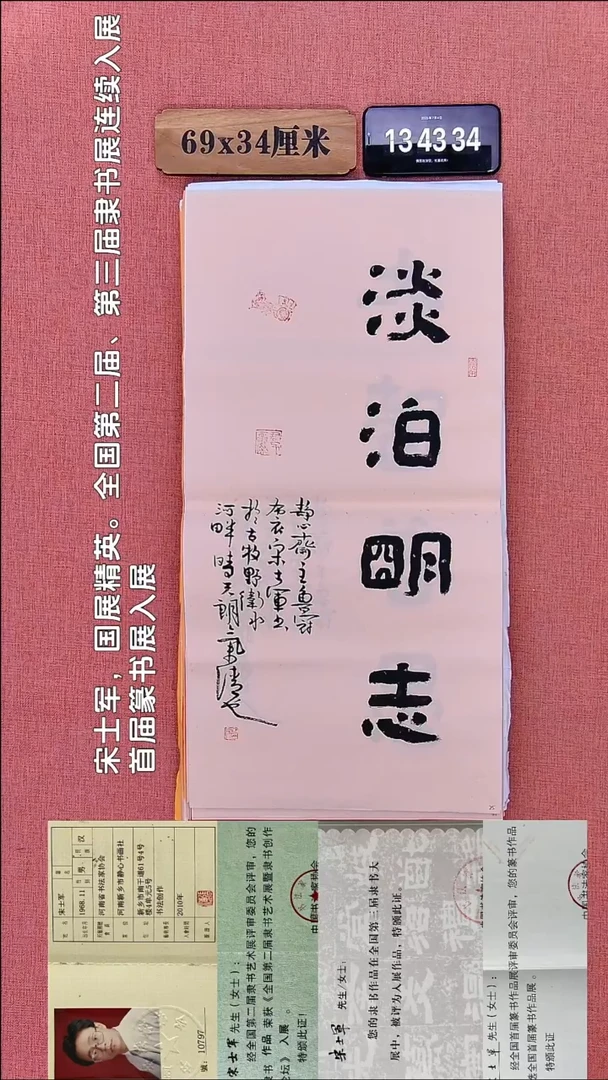 宋士军，国展精英。全国第二届、第三届隶书展连续入展
首届篆书展入展
69x34厘米
13 43 34
淡泊明志
静心斋主鹰冠
布衣宋士军书
于古牧野卫水
河畔
宋士军
1968.11 男 汉
河南省书法家协会
河南新乡市静心书画社
新乡市南干道61号4号
楼4单元5号
书法创作
2010年
號：10797
宋士军 先生（女士）：
经全国第二届隶书艺术展评审委员会评审，您的
隶书 作品 荣获《全国第二届隶书艺术展暨隶书创作
论坛》入展 。
特颁此证！
宋士军 先生/女士：
您的隶书作品在全国第三届隶书大
展中，被评为入展作品，特颁此证。
士军 先生（女士）：
经全国首届篆书作品展评审委员会评审，您的篆书作品
全国首届篆书作品展 。
特颁此证